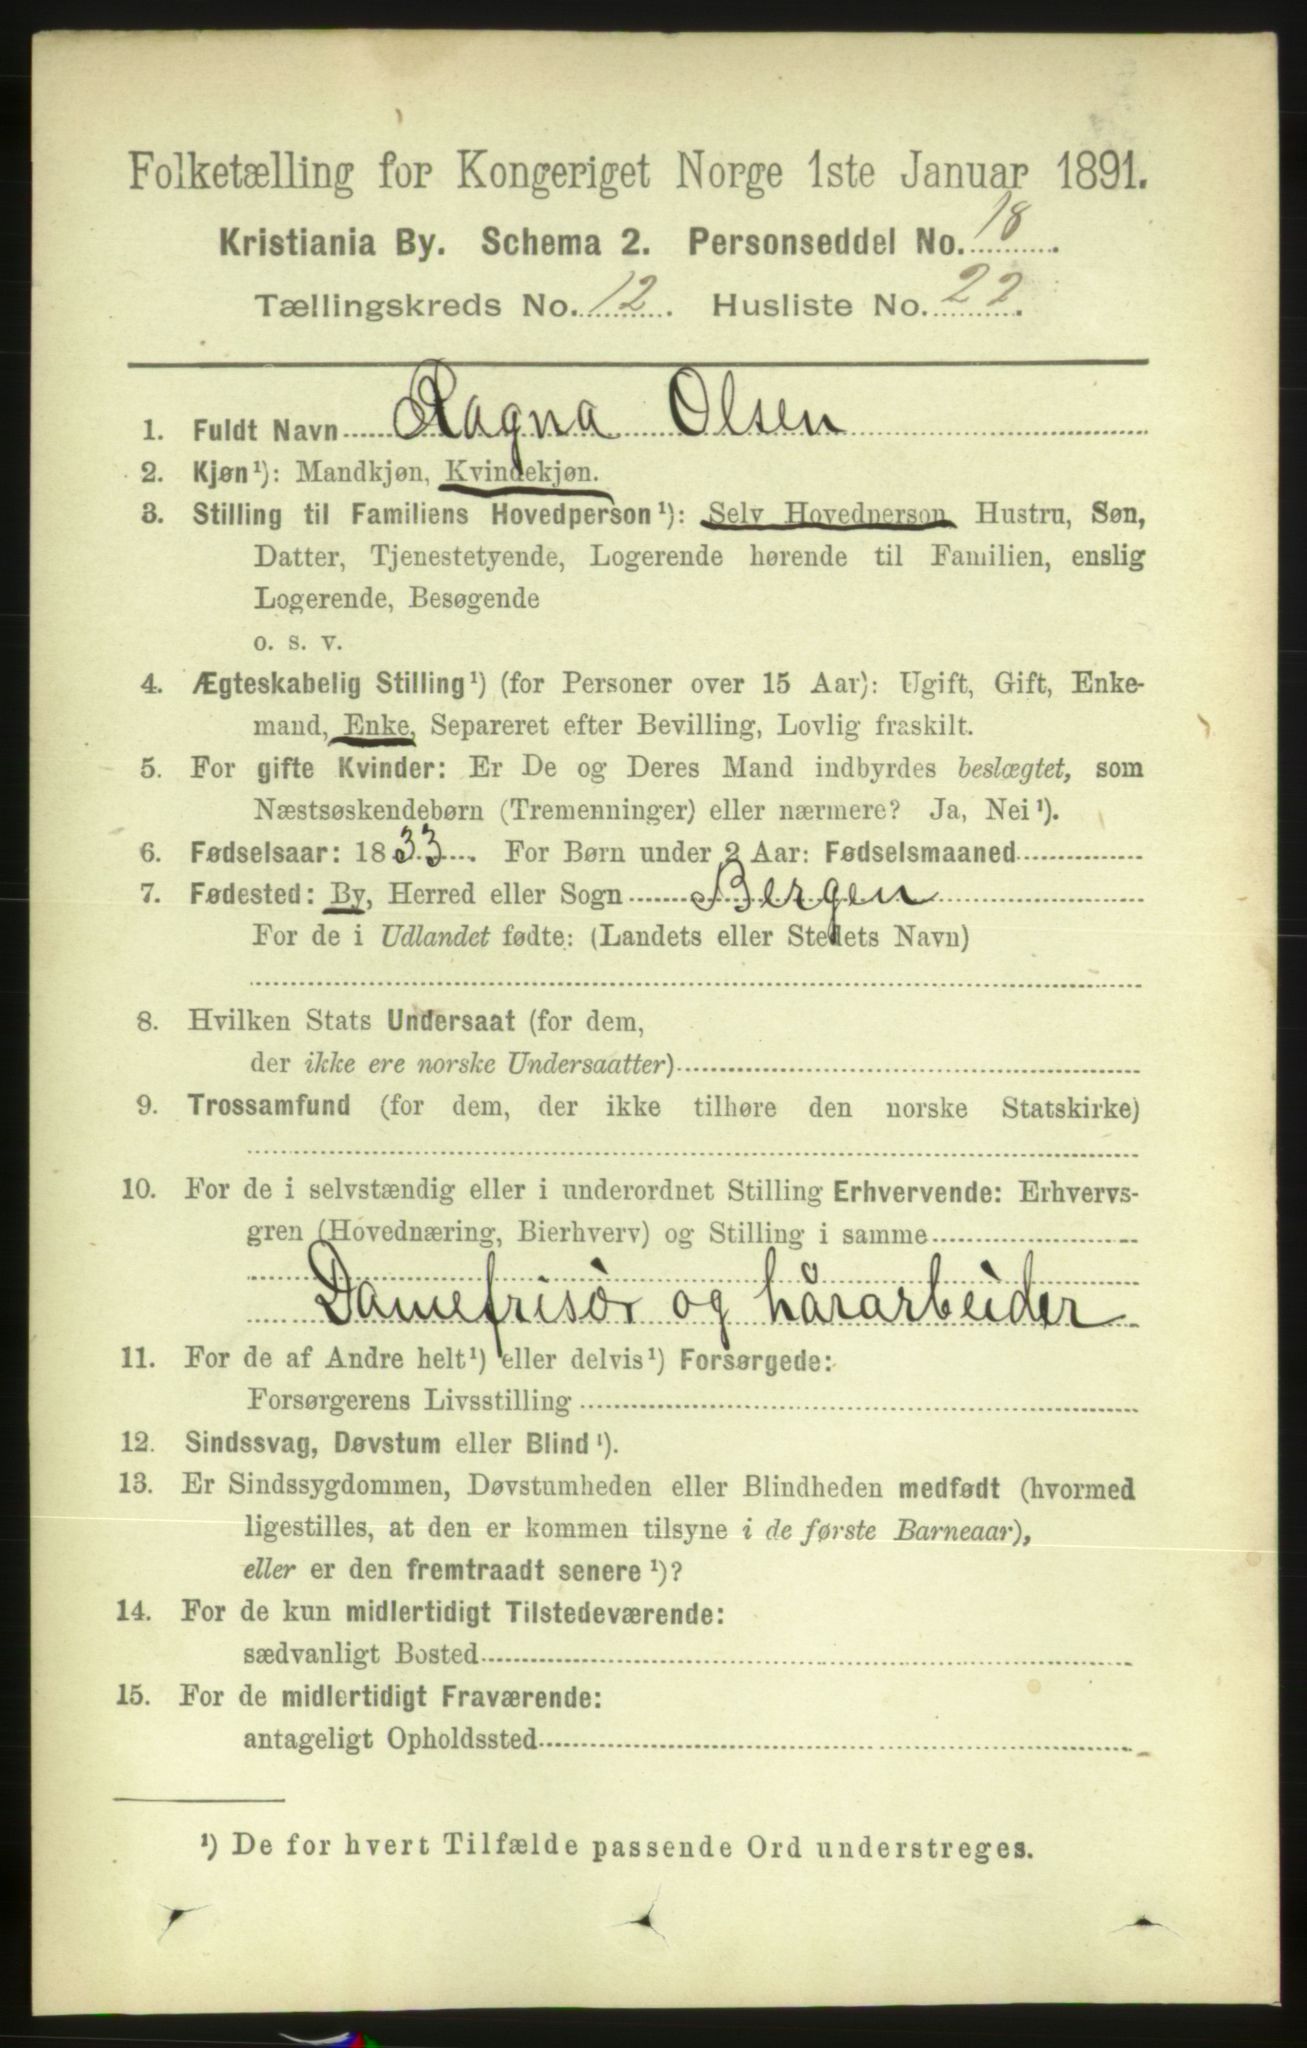 Folketælling for Kongeriget Norge 1ste Januar 1891.
Kristiania By. Schema 2. Personseddel No. 18.
Tællingskreds No. 12. Husliste No. 22.
1. Fuldt Navn Ragna Olsen
2. Kjøn¹): Mandkjøn, Kvindekjøn.
3. Stilling til Familiens Hovedperson¹): Selv Hovedperson Hustru, Søn,
Datter, Tjenestetyende, Logerende hørende til Familien, enslig
Logerende, Besøgende
o. s. v.
4. Ægteskabelig Stilling¹) (for Personer over 15 Aar): Ugift, Gift, Enke-
mand, Enke, Separeret efter Bevilling, Lovlig fraskilt.
5. For gifte Kvinder: Er De og Deres Mand indbyrdes beslægtet, som
Næstsøskendebørn (Tremenninger) eller nærmere? Ja, Nei¹).
6. Fødselsaar: 1833. For Børn under 2 Aar: Fødselsmaaned
7. Fødested: By, Herred eller Sogn Bergen
For de i Udlandet fødte: (Landets eller Stedets Navn)
8. Hvilken Stats Undersaat (for dem,
der ikke ere norske Undersaatter)
9. Trossamfund (for dem, der ikke tilhøre den norske Statskirke)
10. For de i selvstændig eller i underordnet Stilling Erhvervende: Erhvervs-
gren (Hovednæring, Bierhverv) og Stilling i samme
Damefrisør og hårarbeider
11. For de af Andre helt¹) eller delvis¹) Forsørgede:
Forsørgerens Livsstilling
12. Sindssvag, Døvstum eller Blind¹).
13. Er Sindssygdommen, Døvstumheden eller Blindheden medfødt (hvormed
ligestilles, at den er kommen tilsyne i de første Barneaar),
eller er den fremtraadt senere¹)?
14. For de kun midlertidigt Tilstedeværende:
sædvanligt Bosted
15. For de midlertidigt Fraværende:
antageligt Opholdssted
¹) De for hvert Tilfælde passende Ord understreges.